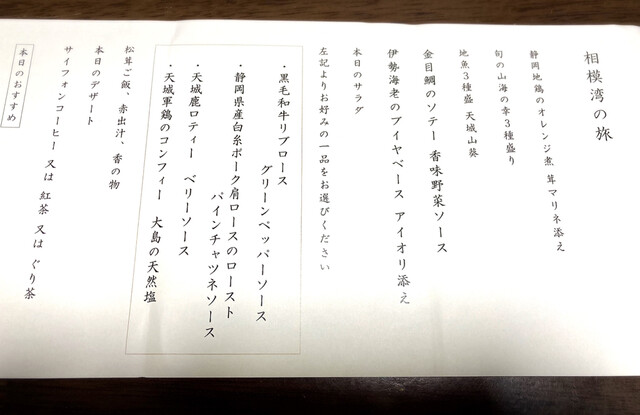 相模湾の旅
静岡地鶏のオレンジ煮 茸マリネ添え
旬の山海の幸3種盛り
地魚3種盛 天城山葵
金目鯛のソテー 香味野菜ソース
伊勢海老のブイヤベース アイオリ添え
本日のサラダ
左記よりお好みの一品をお選びください
・黒毛和牛リブロース
グリーンペッパーソース
・静岡県産白糸ポーク肩ロースのロースト
パインチャツネソース
・天城鹿ロティー ベリーソース
・天城軍鶏のコンフィー 大島の天然塩
松茸ご飯、赤出汁、香の物
本日のデザート
サイフォンコーヒー 又は 紅茶 又は ぐり茶
本日のおすすめ